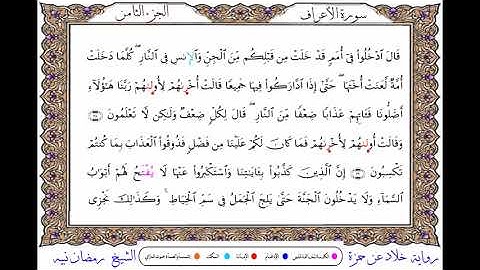 سورة الأعراف
الجزء الثامن
قَالَ ٱدْخُلُوا۟ فِىٓ أُمَمٍ قَدْ خَلَتْ مِن قَبْلِكُم مِّنَ ٱلْجِنِّ وَٱلْإِنسِ فِى ٱلنَّارِ ۖ كُلَّمَا دَخَلَتْ
أُمَّةٌ لَّعَنَتْ أُخْتَهَا ۖ حَتَّىٰٓ إِذَا ٱدَّارَكُوا۟ فِيهَا جَمِيعًا قَالَتْ أُخْرَىٰهُمْ لِأُولَىٰهُمْ رَبَّنَا هَٰٓؤُلَآءِ
أَضَلُّونَا فَـَٔاتِهِمْ عَذَابًا ضِعْفًا مِّنَ ٱلنَّارِ ۖ قَالَ لِكُلٍّ ضِعْفٌ وَلَٰكِن لَّا تَعْلَمُونَ
وَقَالَتْ أُولَىٰهُمْ لِأُخْرَىٰهُمْ فَمَا كَانَ لَكُمْ عَلَيْنَا مِن فَضْلٍ فَذُوقُوا۟ ٱلْعَذَابَ بِمَا كُنتُمْ
تَكْسِبُونَ إِنَّ ٱلَّذِينَ كَذَّبُوا۟ بِـَٔايَٰتِنَا وَٱسْتَكْبَرُوا۟ عَنْهَا لَا يُفْتَحُ لَهُمْ أَبْوَٰبُ
ٱلسَّمَآءِ وَلَا يَدْخُلُونَ ٱلْجَنَّةَ حَتَّىٰ يَلِجَ ٱلْجَمَلُ فِى سَمِّ ٱلْخِيَاطِ ۚ وَكَذَٰلِكَ نَجْزِى
رواية خلاد عن حمزة
الشيخ رمضان نبيه